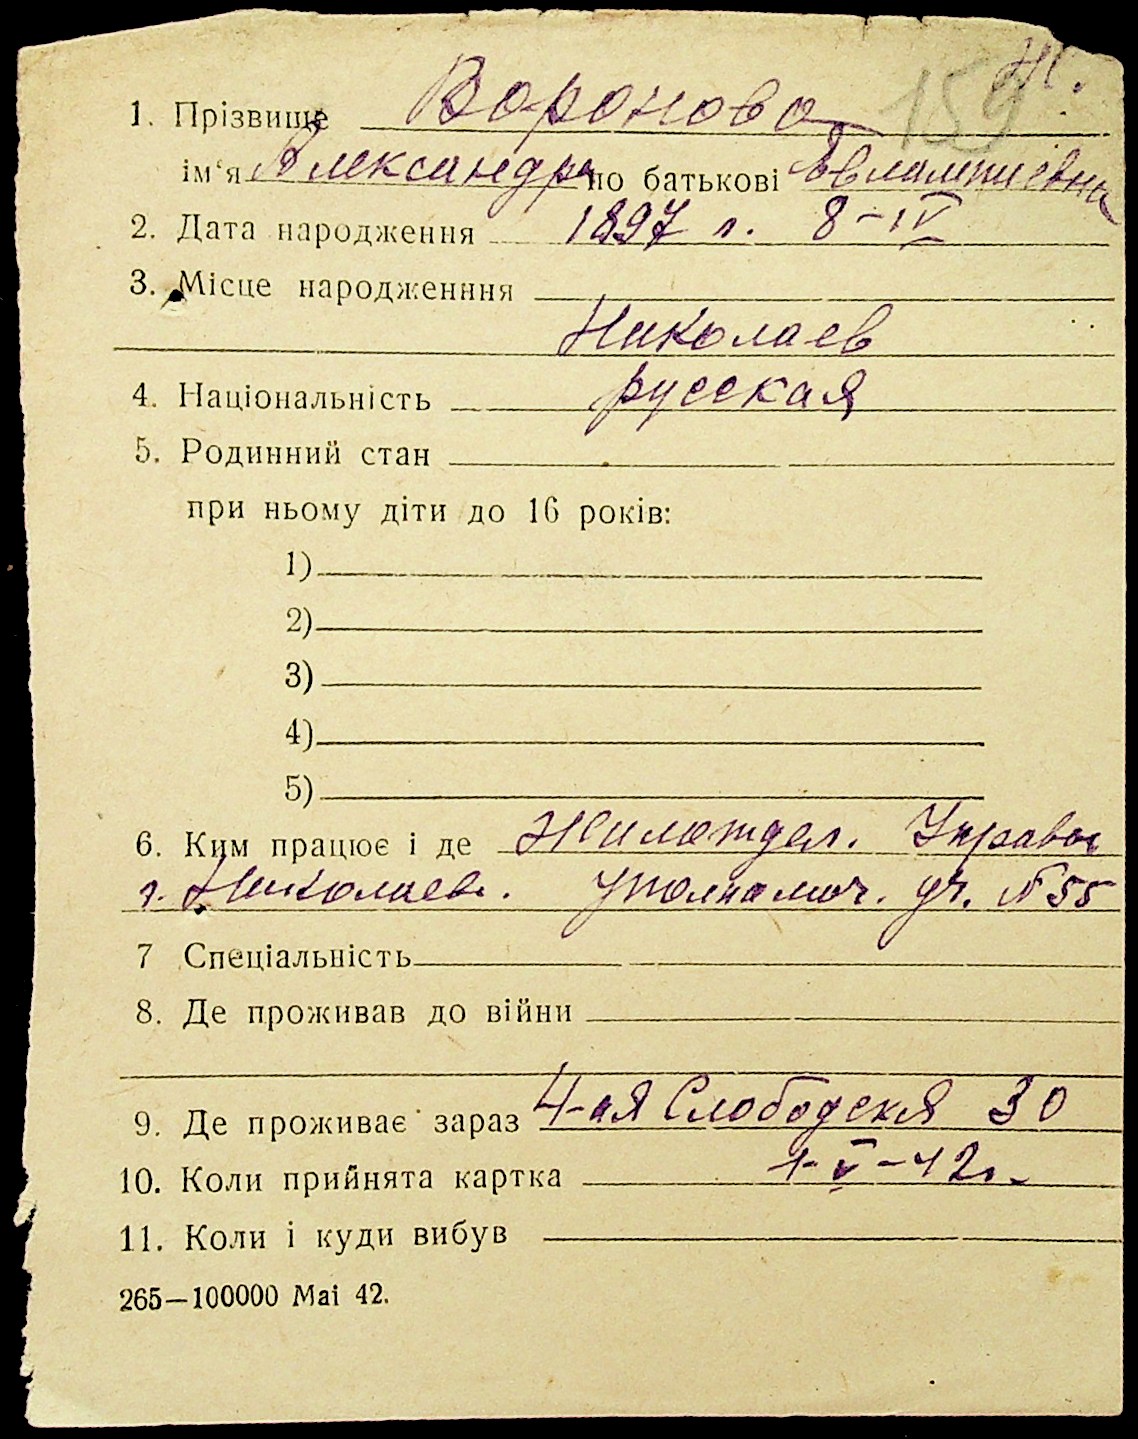 159 Ж.
1. Прізвище Воронова
ім'я Александра по батькові Евлампиевна
2. Дата народження 1897 г. 8-IV
3. Місце народженння
Николаев
4. Національність русская
5. Родинний стан
при ньому діти до 16 років:
1)
2)
3)
4)
5)
6. Ким працює і де Жилотдел. Управы
г. Николаев. уполномоч. уч. №55
7 Спеціальність
8. Де проживав до війни
9. Де проживає зараз 4-ая Слободская 30
10. Коли прийнята картка 1-V-42г.
11. Коли і куди вибув
265—100000 Маі 42.